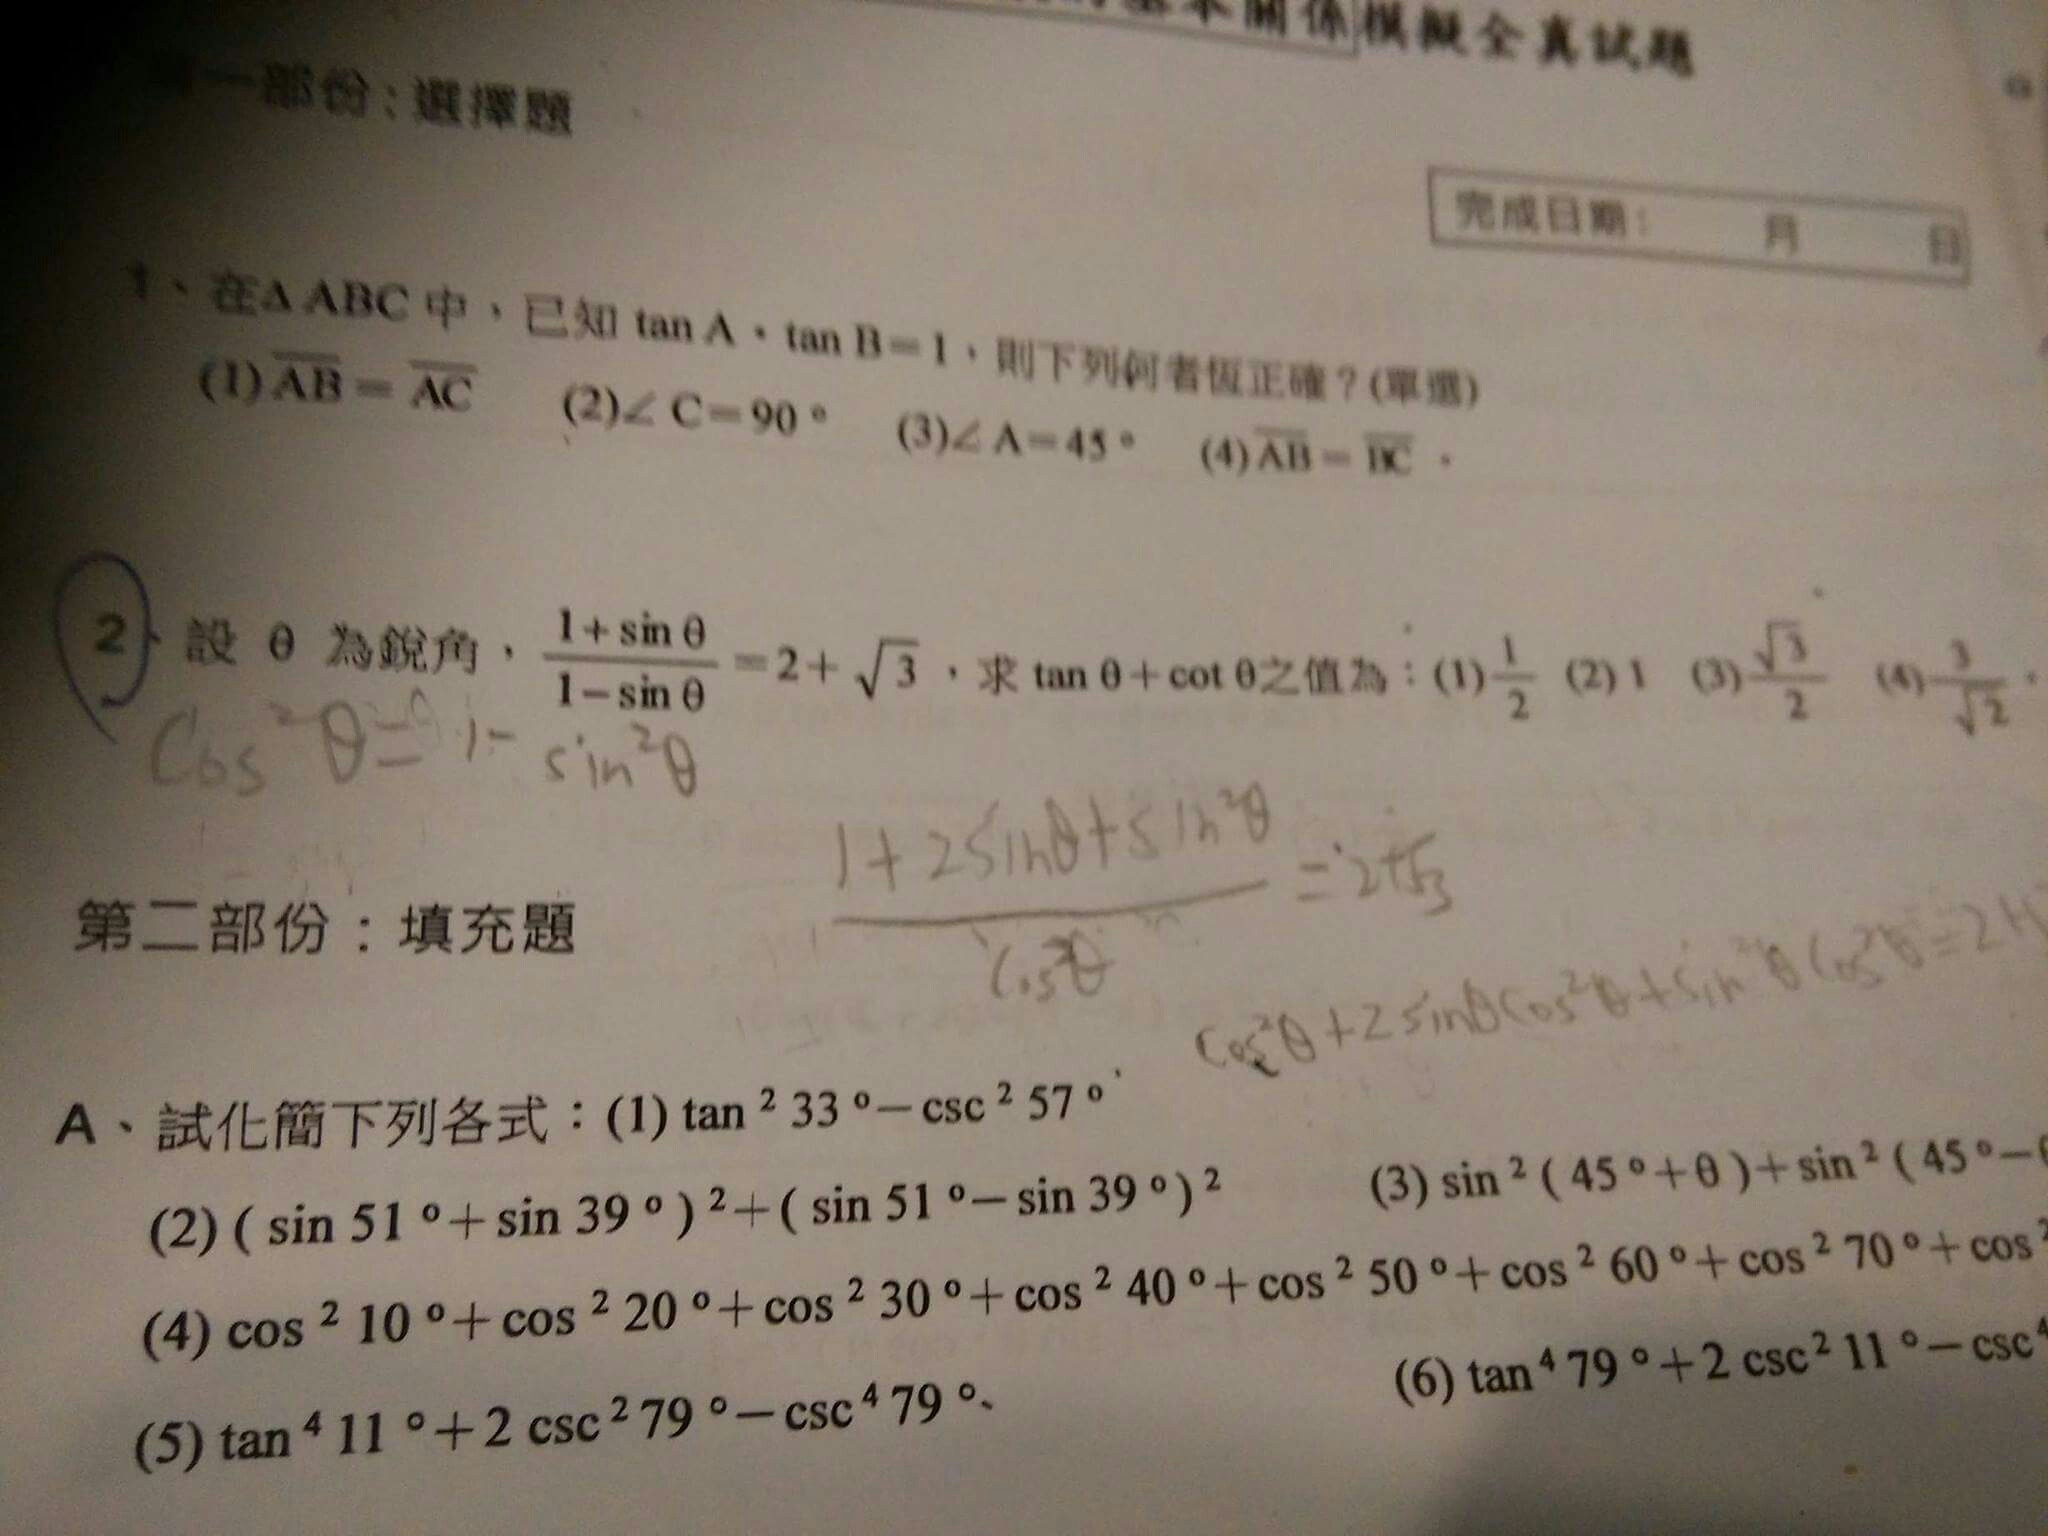 基本關係模擬全真試題
一部份：選擇題
完成日期： 月 日
1、在ΔABC中，已知 tan A・tan B＝1，則下列何者恆正確？(單選)
(1) A̅B̅＝A̅C̅ (2)∠C＝90° (3)∠A＝45° (4) A̅B̅＝B̅C̅。
2、設 θ 為銳角，(1＋sin θ)/(1－sin θ)＝2＋√3，求 tan θ＋cot θ之值為：(1) 1/2 (2) 1 (3) √3/2 (4) 3/√2。
cos²θ = 1 - sin²θ
(1+2sinθ+sin²θ)/cos²θ = 2+√3
第二部份：填充題
cos²θ+2sinθcos²θ+sin²θcos²θ=2+
A、試化簡下列各式：(1) tan² 33°－csc² 57°
(2) ( sin 51°＋sin 39° )²＋( sin 51°－sin 39° )² (3) sin² ( 45°＋θ )＋sin² ( 45°－θ
(4) cos² 10°＋cos² 20°＋cos² 30°＋cos² 40°＋cos² 50°＋cos² 60°＋cos² 70°＋cos²
(5) tan⁴ 11°＋2 csc² 79°－csc⁴ 79°、 (6) tan⁴ 79°＋2 csc² 11°－csc⁴